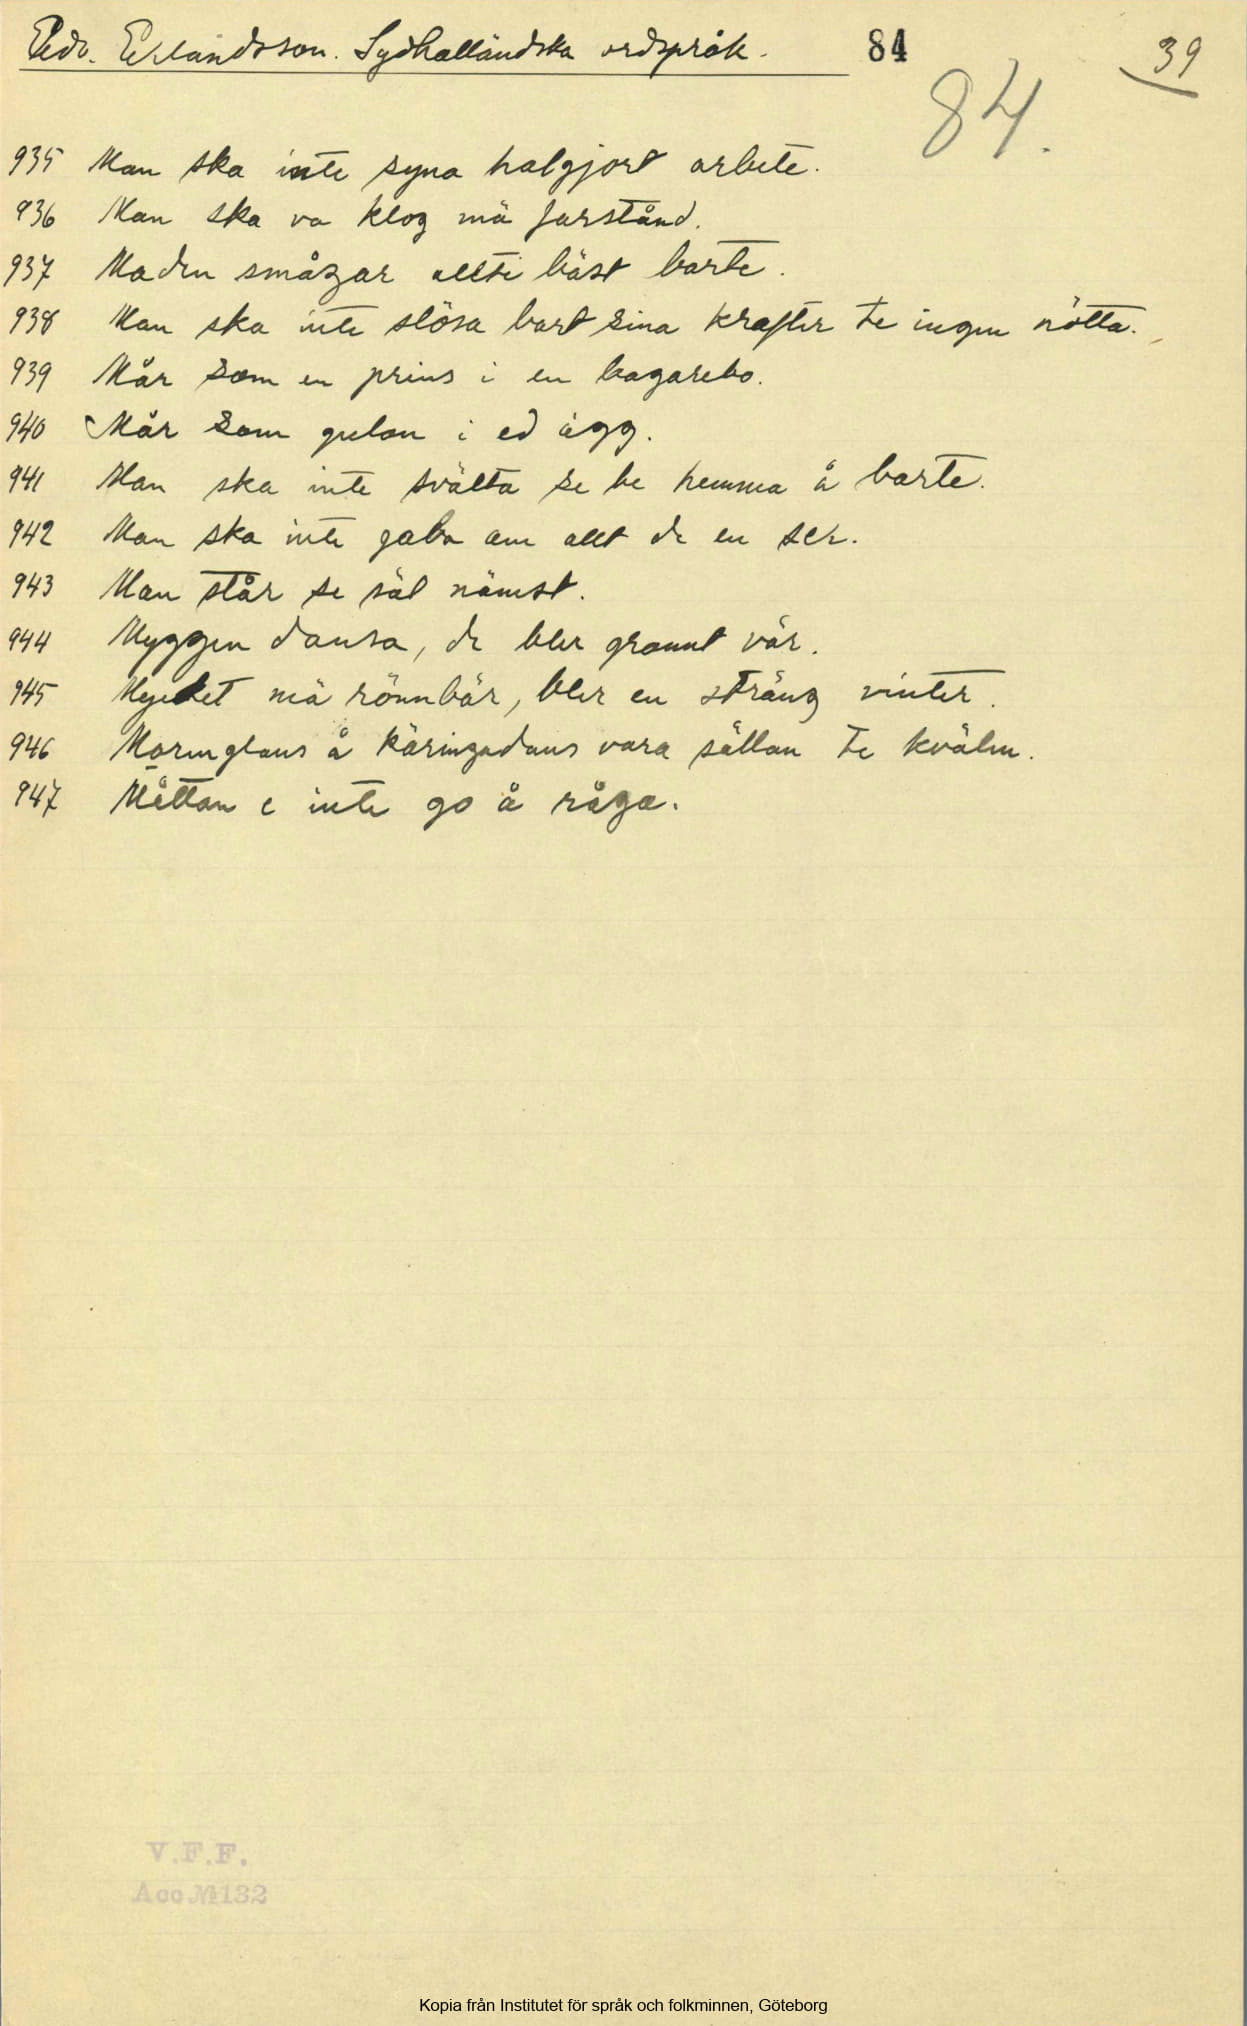 Edv. Erlandsson. Sydhalländska ordspråk. 84 39
84.
935 Man ska inte syna halgjort arbete.
936 Man ska va klog mä farstånd.
937 Maden smågar allti bäst barte.
938 Man ska inte slösa bart sina krafter te ingen nötta.
939 Mår som en prins i en bagarebo.
940 Mår som gulan i ed ägg.
941 Man ska inte svälta se be hemma å barte.
942 Man ska inte gaba am allt de en ser.
943 Man står se säl nämst.
944 Myggen dansa, de bler grannt vär.
945 Mycket mä rönnbär, bler en sträng vinter.
946 Morenglans å käringadans vara sällan te kvälen.
947 Måttan e inte go å råga.
V.F.F.
Acc. № 132
Kopia från Institutet för språk och folkminnen, Göteborg